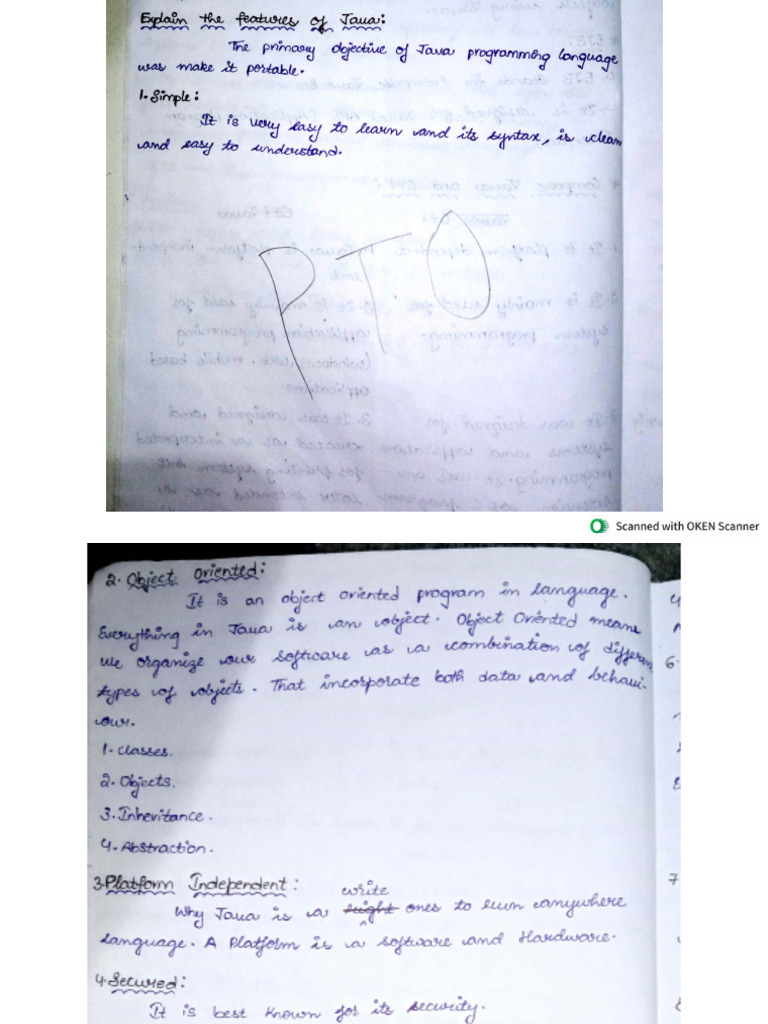 Explain the features of Java:
The primary objective of Java programming language
was make it portable.
1. Simple:
It is very easy to learn and its syntax, is clean
and easy to understand.
PTO
Scanned with OKEN Scanner
2. Object Oriented:
It is an object oriented program in language.
Everything in Java is an object. Object Oriented means
we organize our software as a combination of differen
types of objects. That incorporate both data and behavi-
our.
1. Classes.
2. Objects.
3. Inheritance.
4. Abstraction.
3. Platform Independent:
write
Why Java is a ones to run anywhere
language. A Platform is a software and Hardware.
4. Secured:
It is best known for its security.
6.
7